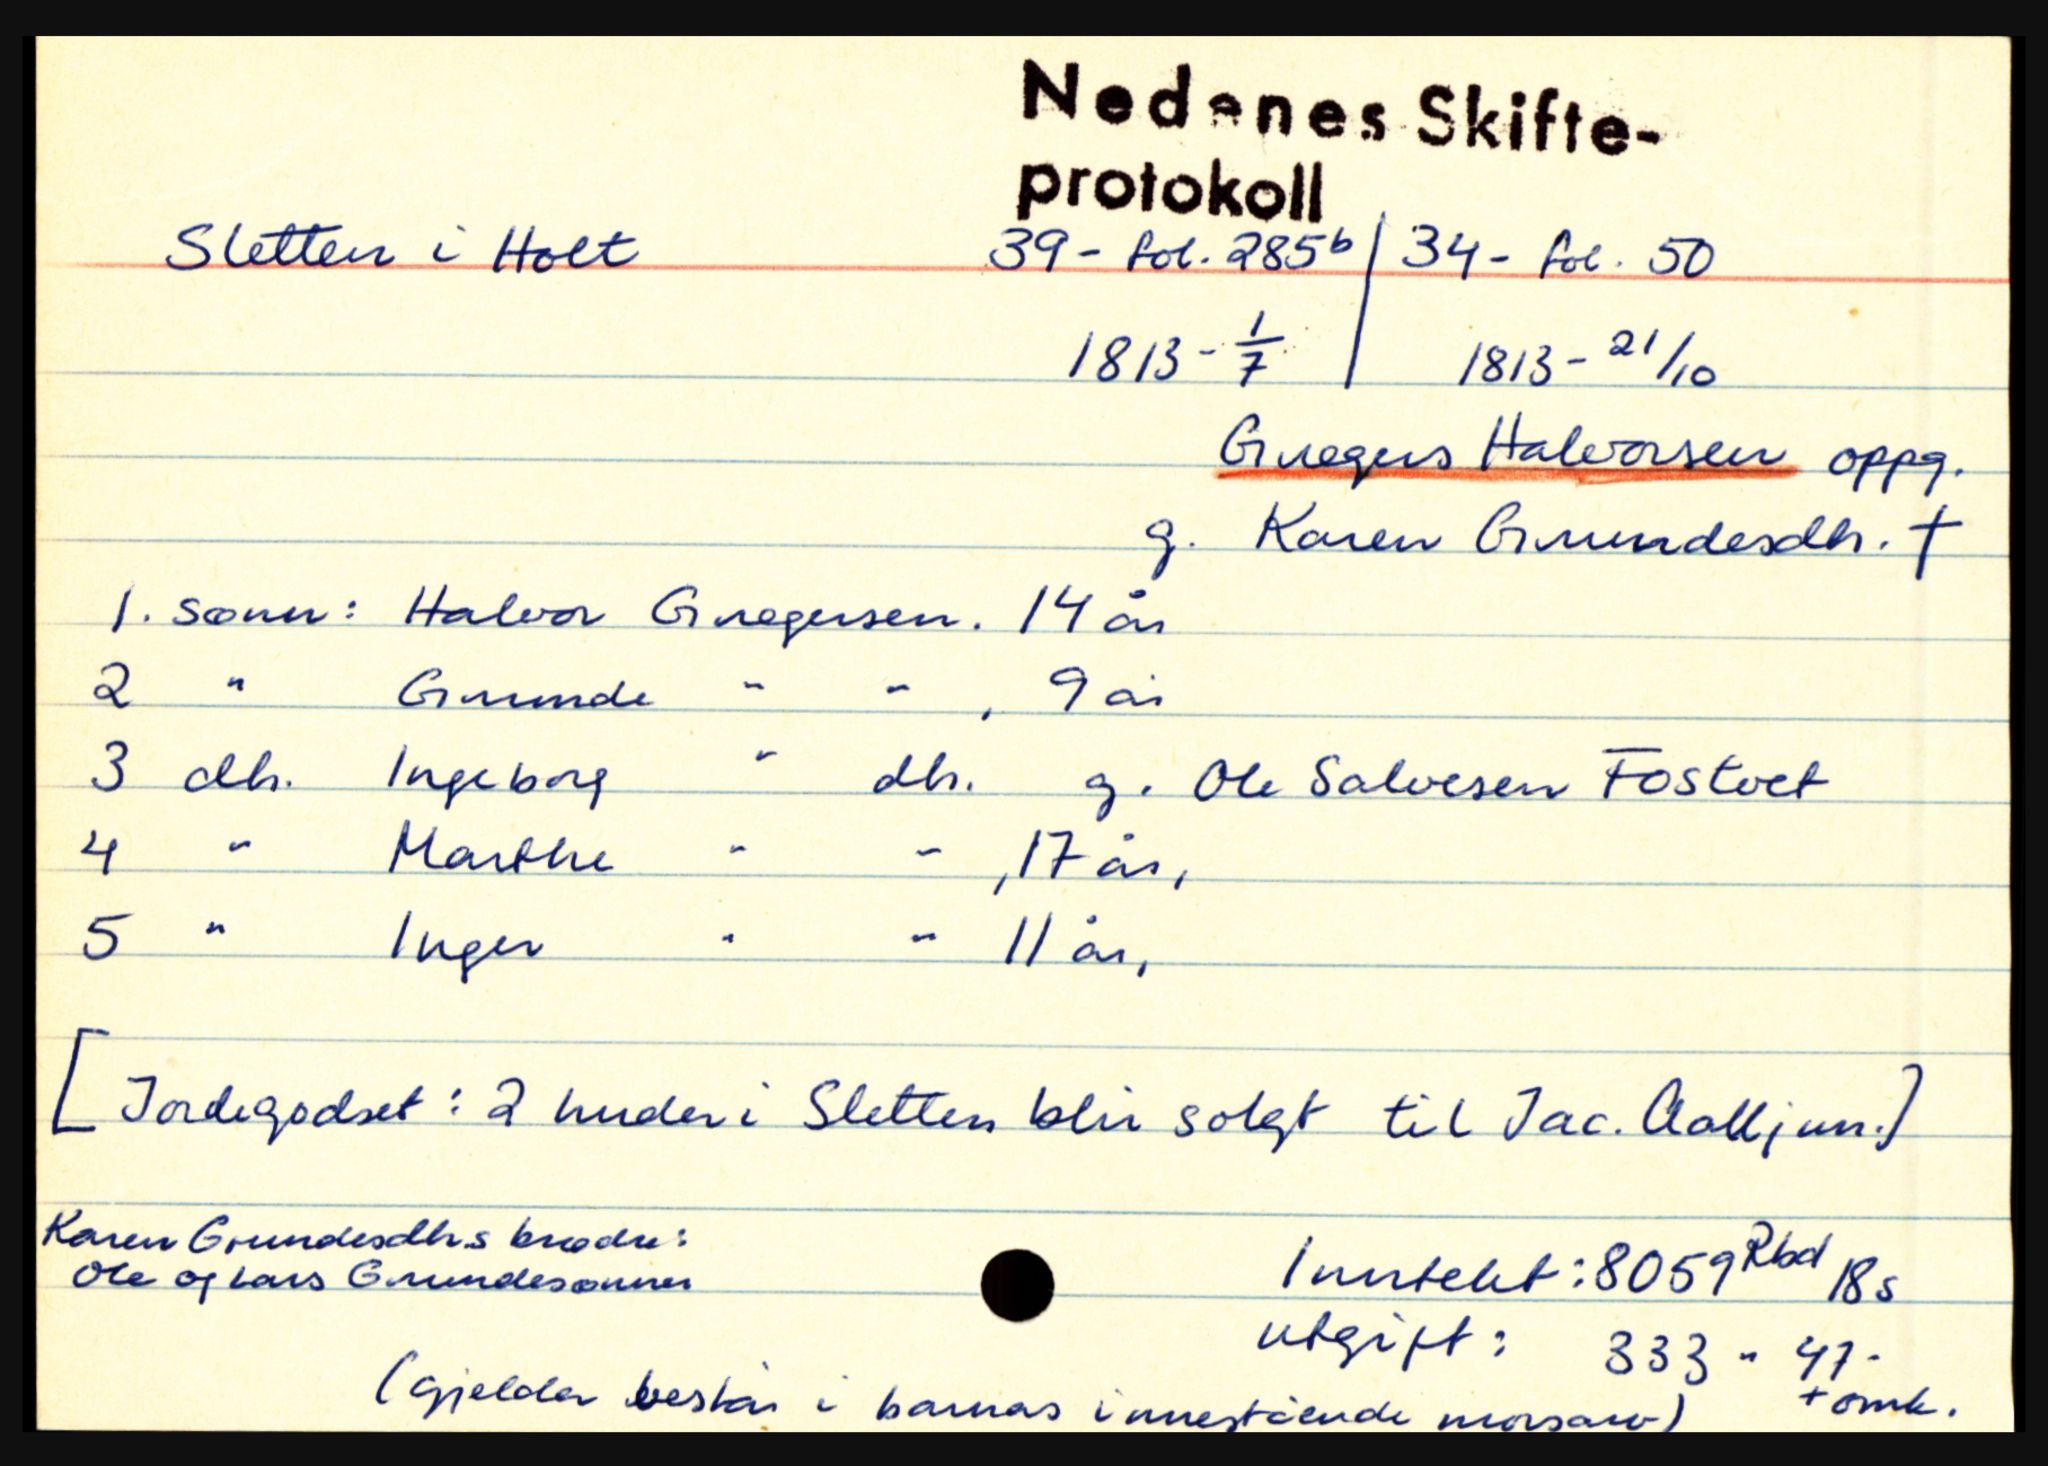 Nedenes Skifte-
protokoll
Sletten i Holt 39 - fol. 285b / 34 - fol. 50
1813 - 1/7 1813 - 21/10
Gregers Halvorsen oppg.
g. Karen Grundesdh. †
1. sønn: Halvor Gregersen. 14 år
2 " Grunde " " , 9 år
3 dh. Ingeborg " dh. g. Ole Salvesen Fostvet
4 " Marthe " " , 17 år,
5 " Inger " " 11 år,
[Jordegodset: 2 huder i Sletten blir solgt til Jac. Aall jun.]
Karen Grundesdh.s brødre:
Ole og Lars Grundesønner
Inntekt: 8059 Rbd 18 s
utgift: 333 " 47 -
+ omk.
(gjelder består i barnas innestående morsarv)